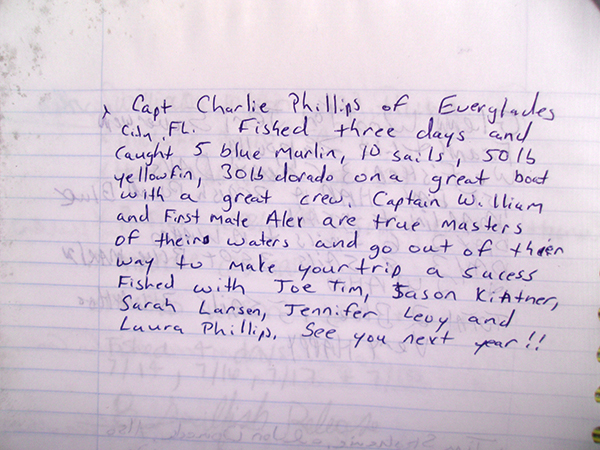 Capt Charlie Phillips of Everglades
City, FL. Fished three days and
Caught 5 blue Marlin, 10 sails, 50 lb
yellowfin, 30 lb dorado on a great boat
with a great crew. Captain William
and First Mate Alex are true masters
of their waters and go out of their
way to make your trip a sucess
Fished with Joe Tim, Jason Kittner,
Sarah Larsen, Jennifer Levy and
Laura Phillips. See you next year!!